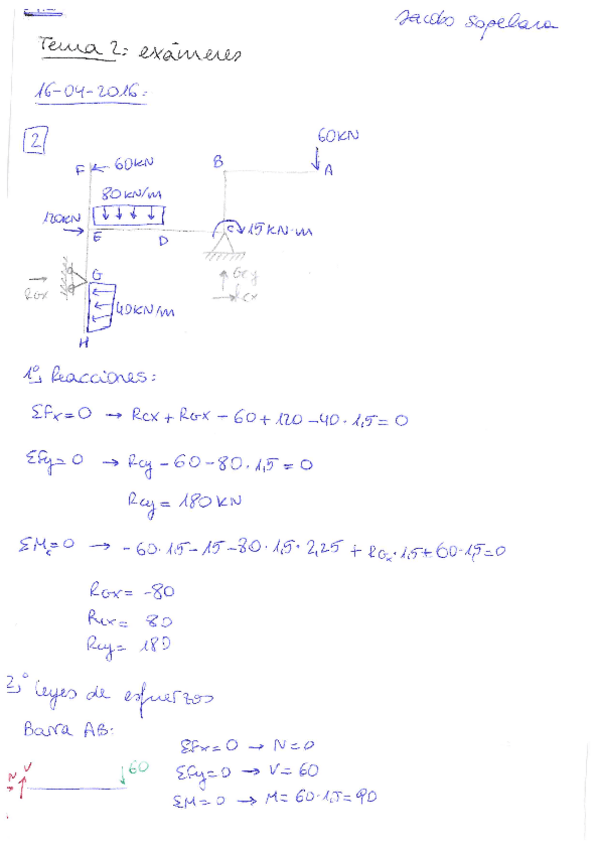 Jacobo Sapelara
Tema 2: exámenes
16-04-2016:
2
60KN
F ← 60KN
B
A
80KN/m
120KN
E
D
C
15KN·m
G
RGX
RCy
RCX
40KN/m
H
1º, Reacciones:
ΣFx=0 → RCX + RGX - 60 + 120 - 40·1,5 = 0
ΣFy=0 → RCy - 60 - 80·1,5 = 0
RCy = 180KN
ΣMc=0 → -60·1,5 - 15 - 80·1,5·2,25 + RGx·1,5 + 60·1,5=0
RGX = -80
RCX = 80
RCy = 180
2,º Leyes de esfuerzos
Barra AB:
ΣFx=0 → N=0
N V 60
ΣFy=0 → V=60
ΣM=0 → M=60·1,5=90